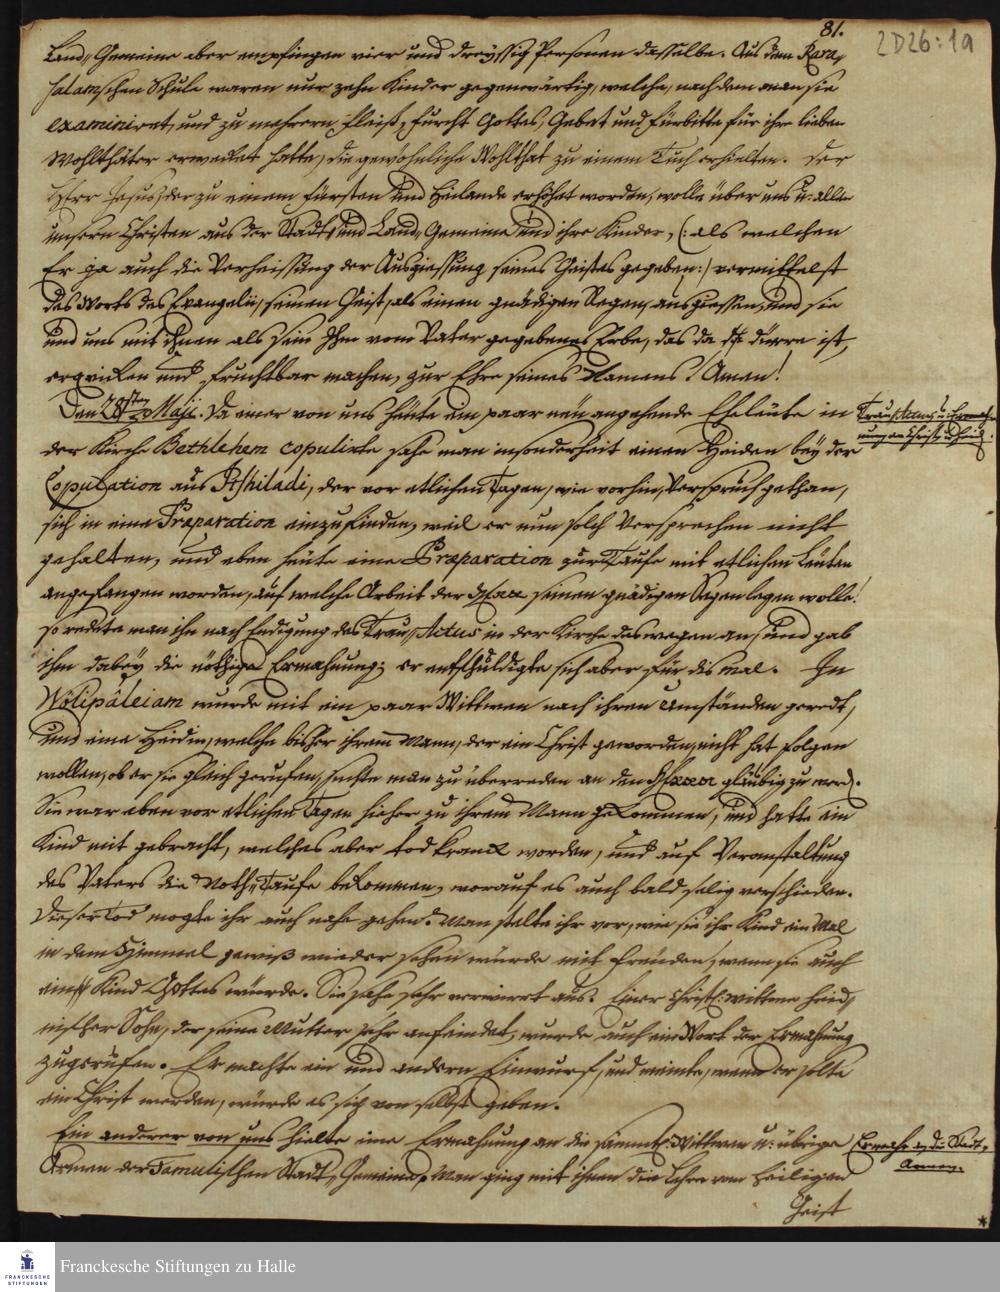 81.
2D26:19
Land-Gemeine aber empfingen vier und dreyssig Personen dasselbe. Aus dem Rara-
salamschen Schule waren nur zehn Kinder gegenwärtig, welche, nachdem man sie
examiniret, und zu mehrern Fleiß, Furcht Gottes, Gebet und Fürbitte für ihre lieben
Wohlthäter erwecket hatte, die gewöhnliche Wohlthat zu einem Tuch erhielten. Der
Herr Jesus, der zu einem Fürsten und Heilande erhöhet worden, wolle über uns u. alle
unsern Christen aus der Stadt und Land-Gemeine und ihre Kinder, (: als welchen
Er ja auch die Verheissung der Ausgiessung seines Geistes gegeben :) vermittelst
des Worts des Evangelii, seinen Geist, als einen gnädigen Regen, ausgiessen, und sie
und uns mit ihnen als Sein Ihm vom Vater gegebenes Erbe, das da dürre ist,
erquicken und fruchtbar machen, zur Ehre seines Namens! Amen!
Den 28sten Maji. Da einer von uns heute ein paar neu angehende Eheleute in
der Kirche Bethlehem copulirte sahe man insonderheit einen Heiden bey der
Copulation aus Itshiladi, der vor etlichen Tagen, wie vorhin, Verspruch gethan,
sich in eine Præparation einzufinden, weil er nun solch Versprechen nicht
gehalten, und eben heute eine Præparation zur Taufe mit etlichen Leuten
angefangen worden, auf welche Arbeit der Herr seinen gnädigen Segen legen wolle!
so redete man ihn nach Endigung des Trau-Actus in der Kirche deswegen an, und gab
ihm dabey die nöthige Ermahnung; er entschuldigte sich aber für dis mal. In
Wölipâleiam wurde mit ein paar Wittwen nach ihren Umständen geredt,
und eine Heidin, welche bisher ihrem Mann, der ein Christ geworden, nicht hat folgen
wollen, ob er sie gleich gerufen, suchte man zu überreden an den Herrn gläubig zu werd.
Sie war eben vor etlichen Tagen hieher zu ihrem Mann gekommen, und hatte ein
Kind mit gebracht, welches aber tod kranck worden, und auf Veranstaltung
des Vaters die Noth-Taufe bekommen, worauf es auch bald selig verschieden.
Dieser Tod mogte ihr auch nahe gehen. Man stelte ihr vor, wie sie ihr Kind ein Mal
in dem Himmel gewiß wieder sehen würde mit Freuden, wenn sie auch
ein Kind Gottes würde. Sie sahe sehr verwirrt aus. Einer christl. Wittwe heid-
nischer Sohn, der seine Mutter sehr anfeindet, wurde auch ein Wort der Ermahnung
zugerufen. Er machte ein und andern Einwurf, und meinte, wenn er solte
ein Christ werden, würde es sich von selbst geben.
Ein anderer von uns hielte eine Ermahnung an die sämmtl. Wittwen u. übrige
Armen der Tamulischen Stadt-Gemeine. Man ging mit ihnen die Lehre vom Heiligen
Geist
Trau-Actus u. Ermah-
nung an Christen u. Heid.
Ermahn. an die Stadt-
Armen.
FRANCKESCHE
STIFTUNGEN
Franckesche Stiftungen zu Halle